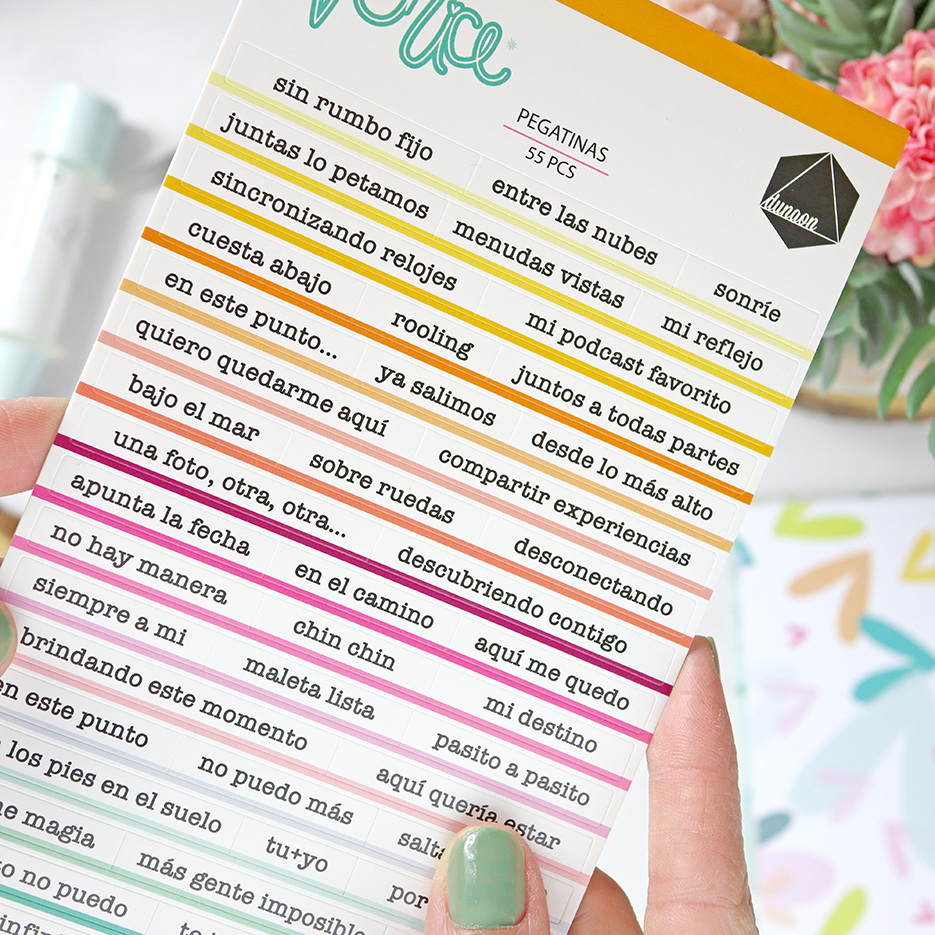 PEGATINAS
55 PCS
dunaon
sin rumbo fijo entre las nubes sonríe
juntas lo petamos menudas vistas mi reflejo
sincronizando relojes mi podcast favorito
cuesta abajo rooling juntos a todas partes
en este punto... ya salimos desde lo más alto
quiero quedarme aquí compartir experiencias
bajo el mar sobre ruedas desconectando
una foto, otra, otra... descubriendo contigo
apunta la fecha en el camino aquí me quedo
no hay manera chin chin mi destino
siempre a mi maleta lista pasito a pasito
brindando este momento aquí quería estar
en este punto no puedo más
los pies en el suelo tu+yo
magia más gente imposible
no puedo